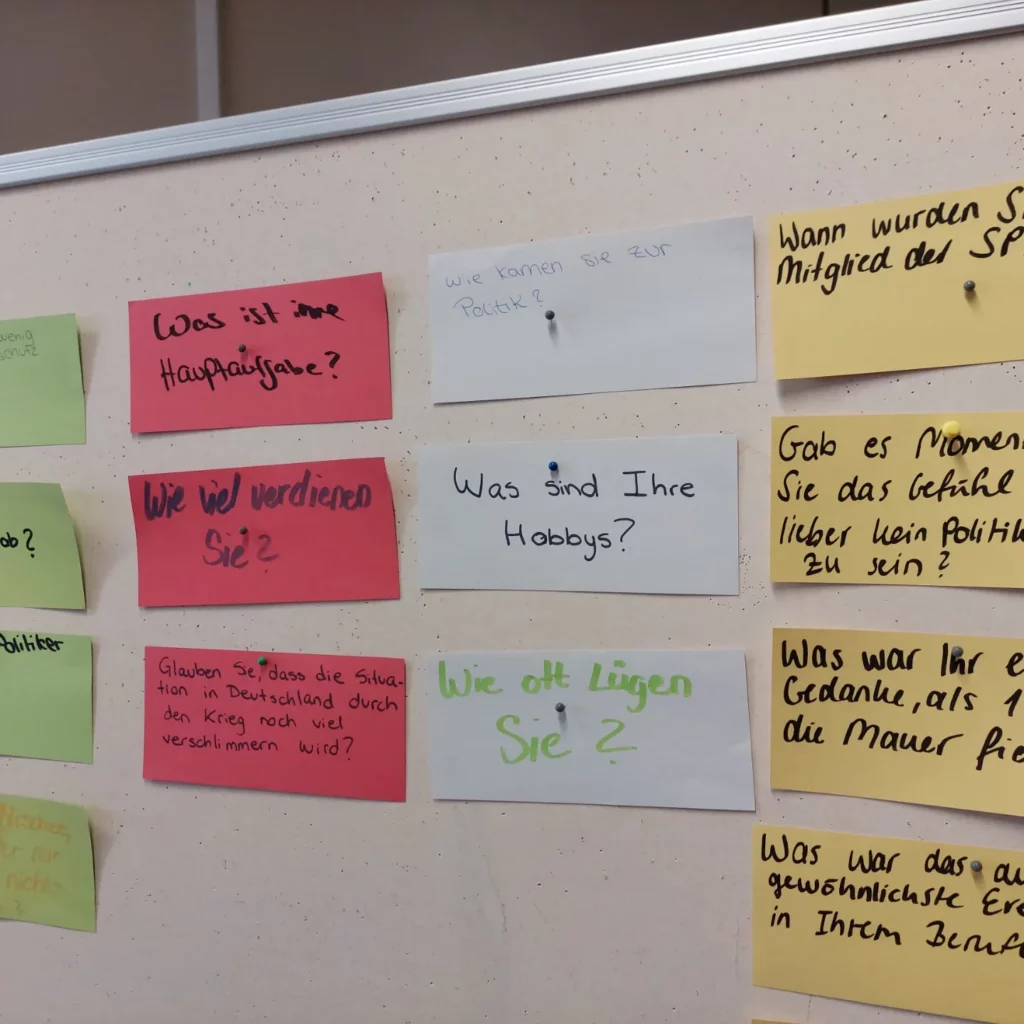 wenig
schutz
ob?
Politiker
Was ist ihre
Hauptaufgabe?
Wie viel verdienen
Sie?
Glauben Se, dass die Situa-
tion in Deutschland durch
den Krieg noch viel
verschlimmern wird?
Wie kamen sie zur
Politik?
Was sind Ihre
Hobbys?
Wie oft Lügen
Sie?
Wann wurden S
Mitglied der SP
Gab es Momen
Sie das Gefühl
lieber kein Politik
zu sein?
Was war Ihr e
Gedanke, als 1
die Mauer fie
Was war das au
gewöhnlichste Ere
in Ihrem Beruf